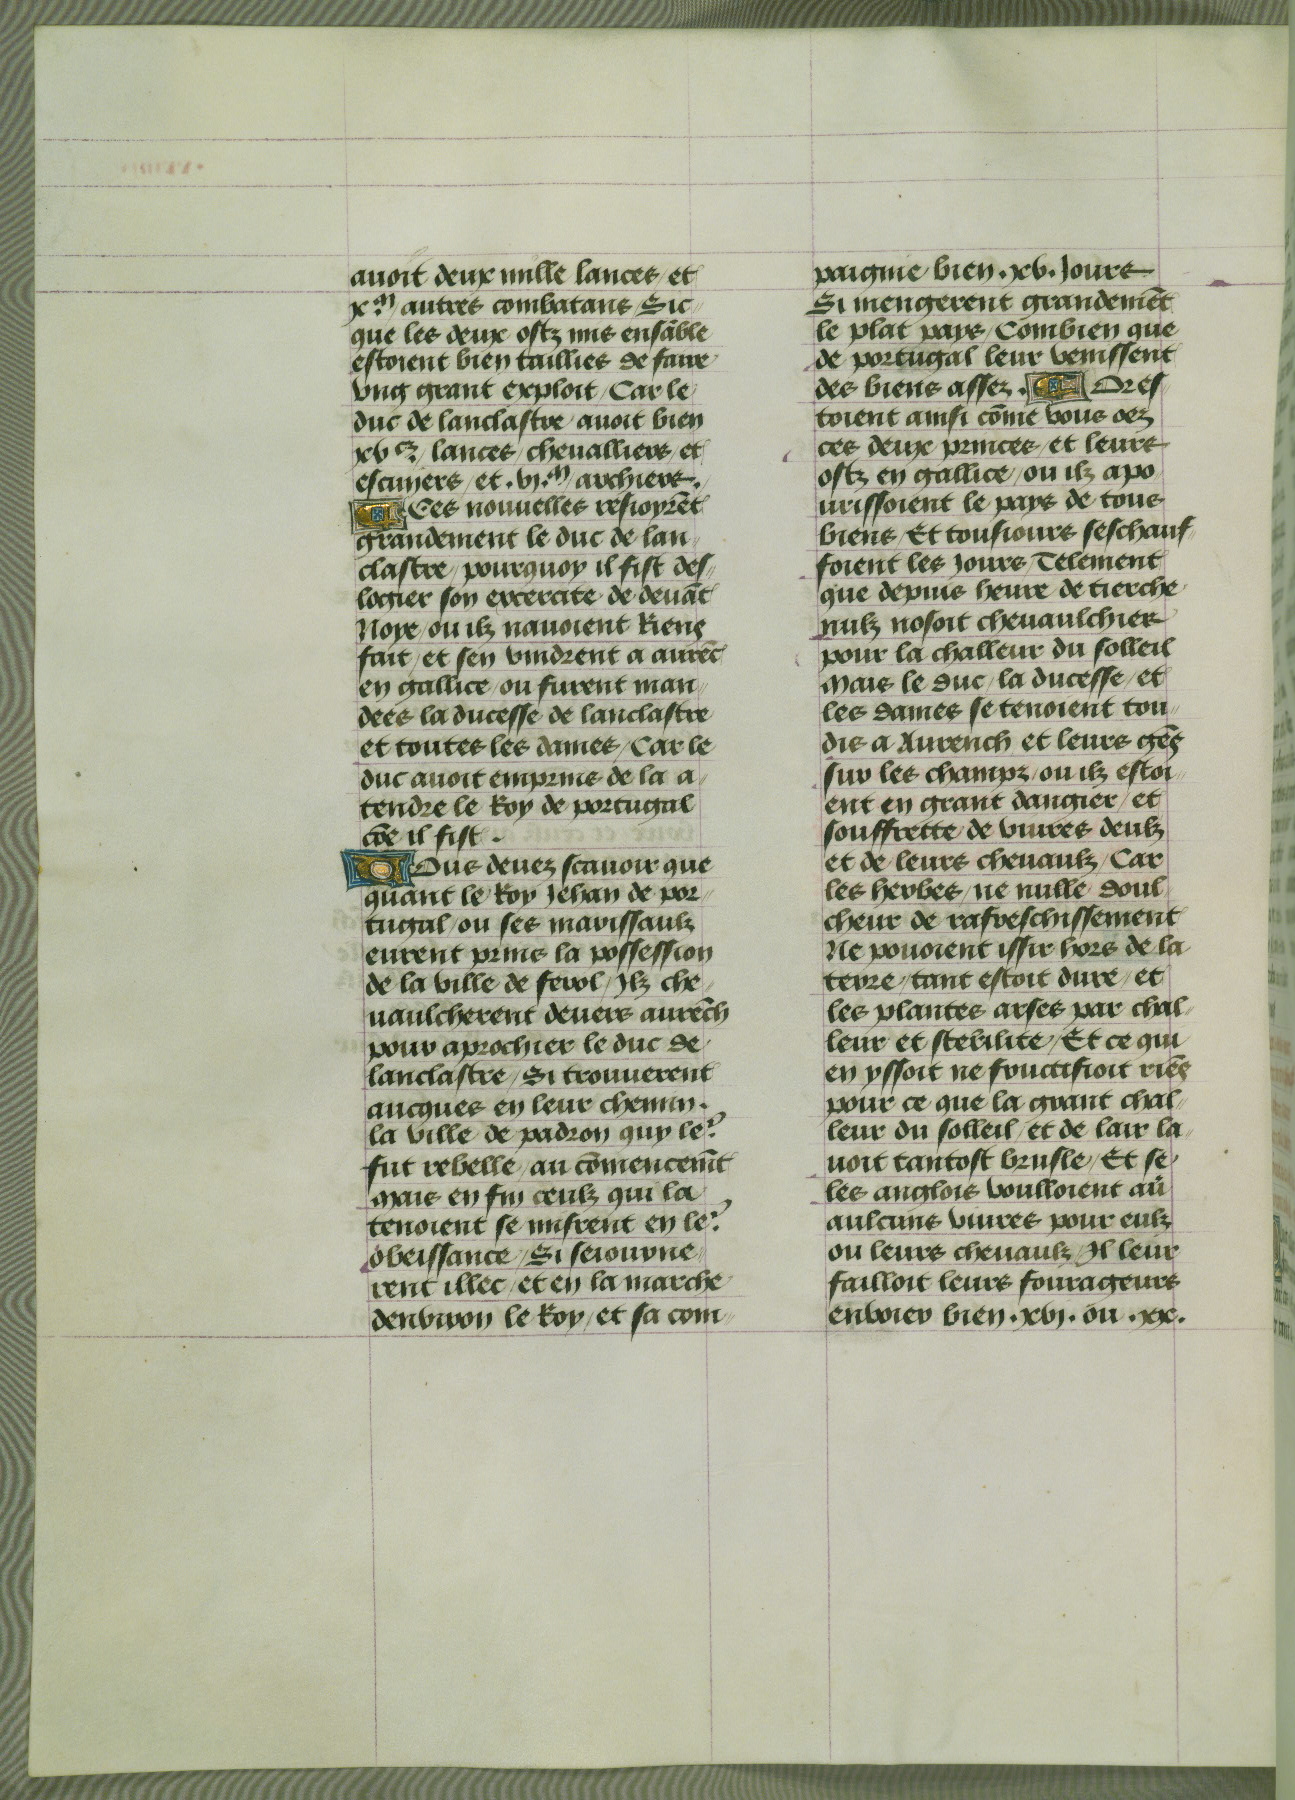 auoit deux mille lances / et
x.m autres combatans / Sic〃
que les deux ostz mis ensāble
estoient bien taillies de faire
vng grant exploit / Car le
duc de lanclastre / auoit bien
xv c lances / cheualliers et
escuiers / et .vj.m archiers.
Ces nouuelles resioyrēt
grandement le duc de lan〃
clastre / pourquoy il fist des〃
logier son excercite de deuāt
Noye / ou ilz nauoient Riens
fait / et sen vindrent a aurēc
en gallice / ou furent man〃
dees la ducesse de lanclastre
et toutes les dames / Car le
duc auoit emprins de la a〃
tendre le Roy de portugal
cōe il fist.
Ous deuez scauoir que
quant le Roy Jehan de por〃
tugal / ou ses marissaulz
eurent prins la possession
de la ville de ferol / Jlz che〃
uaulcherent deuers aurēch
pour aprochier le duc de
lanclastre / Si trouuerent
aucques en leur chemin.
la ville de padron quy le᷑
fut rebelle / au cōmencemēt
Mais en fin ceulz qui la
tenoient se misrent en le᷑
obeissance / Si seiourne〃
rent illec / et en la marche
denuiron le Roy / et sa com〃
paignie bien .xv. Jours
Si mengerent grandemēt
le plat pays / Combien que
de portugal leur venissent
des biens assez. Or es〃
toient ainsi cōme vous oez
ces deux princes / et leurs
ostz en gallice / ou ilz apo〃
urissoient le pays de tous
biens / Et tousiours seschauf〃
foient les Jours / Telement
que depuis heure de tierche
nulz nosoit cheuaulchier
pour la challeur du solleil
Mais le duc / la ducesse / et
les dames se tenoient tou〃
dis a Aurench et leurs gēs
sur les champz / ou ilz estoi〃
ent en grant dangier / et
souffrette de viures deulz
et de leurs cheuaulz / Car
les herbes / ne nulle doul〃
cheur de rafreschissement
Ne pouoient issir hors de la
terre / tant estoit dure / et
les plantes arses par chal〃
leur et sterilite / Et ce qui
en yssoit ne fructifioit riēs
pour ce que la grant chal〃
leur du solleil / et de lair la〃
uoit tantost brusle / Et se
les anglois voulloient au᷑
aulcuns viures pour eulz
ou leurs cheuaulz / Jl leur
failloit leurs fourageurs
enuoier bien .xvj. ou .xx.